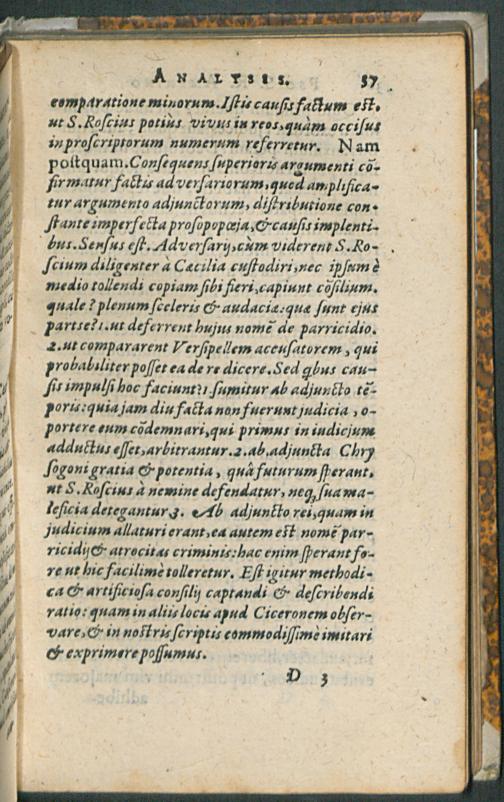 ANALYSIS. 57
comparatione minorum. Istis causis factum est,
ut S. Roscius potiùs vivus in reos, quàm occisus
in proscriptorum numerum referretur. Nam
postquam. Consequens superioris argumenti cõ-
firmatur factis adversariorum, quod amplifica-
tur argumento adjunctorum, distributione con-
stante imperfecta prosopopœja, & causis implenti-
bus. Sensus est. Adversarij, cùm viderent S. Ro-
scium diligenter à Cæcilia custodiri, nec ipsum è
medio tollendi copiam sibi fieri, capiunt cõsilium.
quale? plenum sceleris & audaciæ: quæ sunt ejus
partse? 1. ut deferrent hujus nomẽ de parricidio.
2. ut compararent Versipellem accusatorem, qui
probabiliter posset ea de re dicere. Sed qbus cau-
sis impulsi hoc faciunt? 1 sumitur ab adjuncto tẽ-
poris: quia jam diu facta non fuerunt judicia, o-
portere eum cõdemnari, qui primus in iudicium
adductus esset, arbitrantur. 2. ab. adjuncta Chry
sogoni gratia & potentia, quâ futurum sperant,
ut S. Roscius à nemine defendatur, neq; sua ma-
leficia detegantur 3. Ab adjuncto rei, quam in
judicium allaturi erant, ea autem est nomẽ par-
ricidij & atrocitas criminis: hac enim sperant fo-
re ut hic facilimè tolleretur. Est igitur methodi-
ca & artificiosa consilij captandi & describendi
ratio: quam in aliis locis apud Ciceronem obser-
vare, & in nostris scriptis commodissimè imitari
& exprimere possumus.
D 3